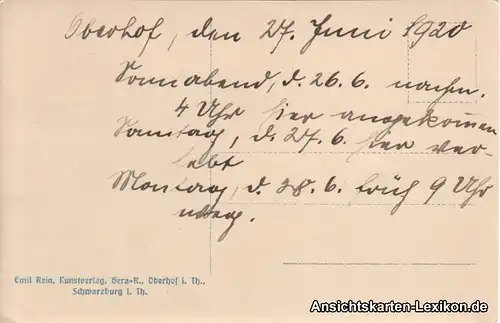 Oberhof, den 27. Juni 1920
Sonnabend, d. 26.6. nachm.
4 Uhr hier angekommen
Sonntag, d. 27.6. hier ver-
lebt
Montag, d. 28.6. früh 9 Uhr
weg.
Emil Rein, Kunstverlag, Gera-R., Oberhof i. Th.,
Schwarzburg i. Th.
Ansichtskarten-Lexikon.de